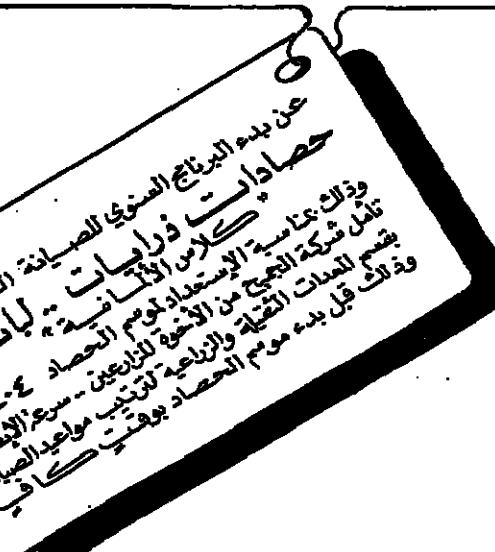 عن بدء البرنامج السنوي للصيانة
حصادات درايات .. لبا
"كلاس الألمانية"
وذلك بمناسبة الإستعداد لموسم الحصاد ٤٠
تأمل شركة الجميح من الأخوة المزارعين .. سرعة الإتص
بقسم المعدات الثقيلة والزراعية لترتيب مواعيد الصيا
وذلك قبل بدء موسم الحصاد بوقت كافي